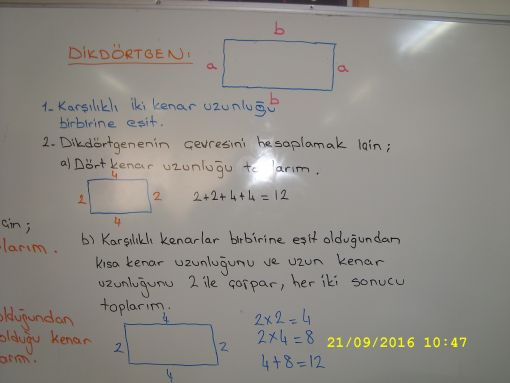 b
DİKDÖRTGEN:
a
a
b
1- Karşılıklı iki kenar uzunluğu
birbirine eşit.
2- Dikdörtgenenin çevresini hesaplamak için;
a) Dört kenar uzunluğu toplarım.
4
2
2
2+2+4+4=12
4
çin;
larım.
b) Karşılıklı kenarlar birbirine eşit olduğundan
kısa kenar uzunluğunu ve uzun kenar
uzunluğunu 2 ile çarpar, her iki sonucu
toplarım.
olduğundan
olduğu kenar
arım.
4
2
2
4
2x2=4
2x4=8
4+8=12
21/09/2016 10:47